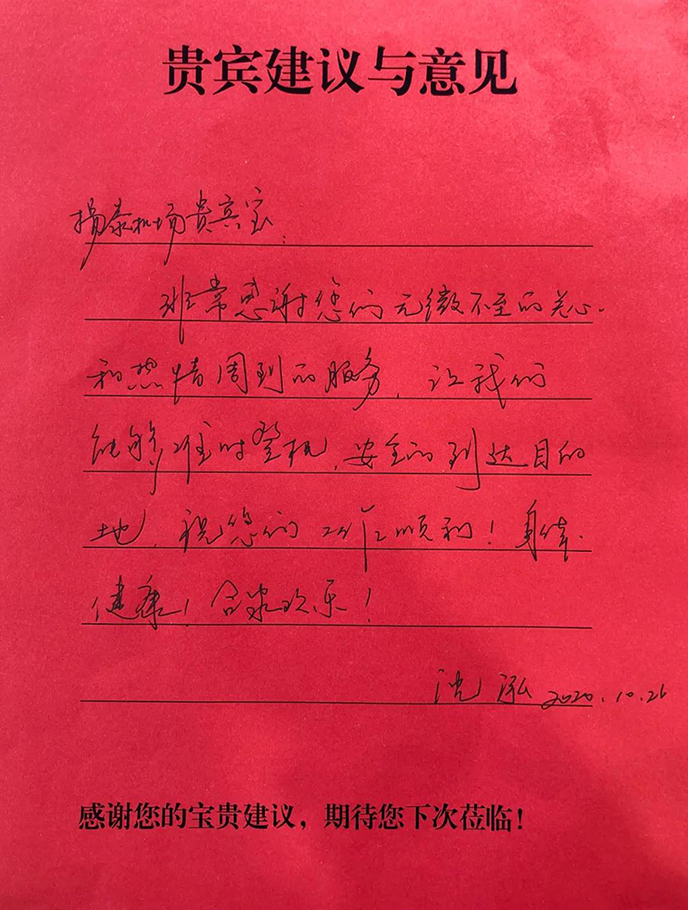 贵宾建议与意见
扬泰机场贵宾室：
非常感谢您们无微不至的关心
和热情周到的服务，让我们
能够准时登机，安全的到达目的
地，祝您们工作顺利！身体
健康！合家欢乐！
沈泓 2020.10.26
感谢您的宝贵建议，期待您下次莅临！